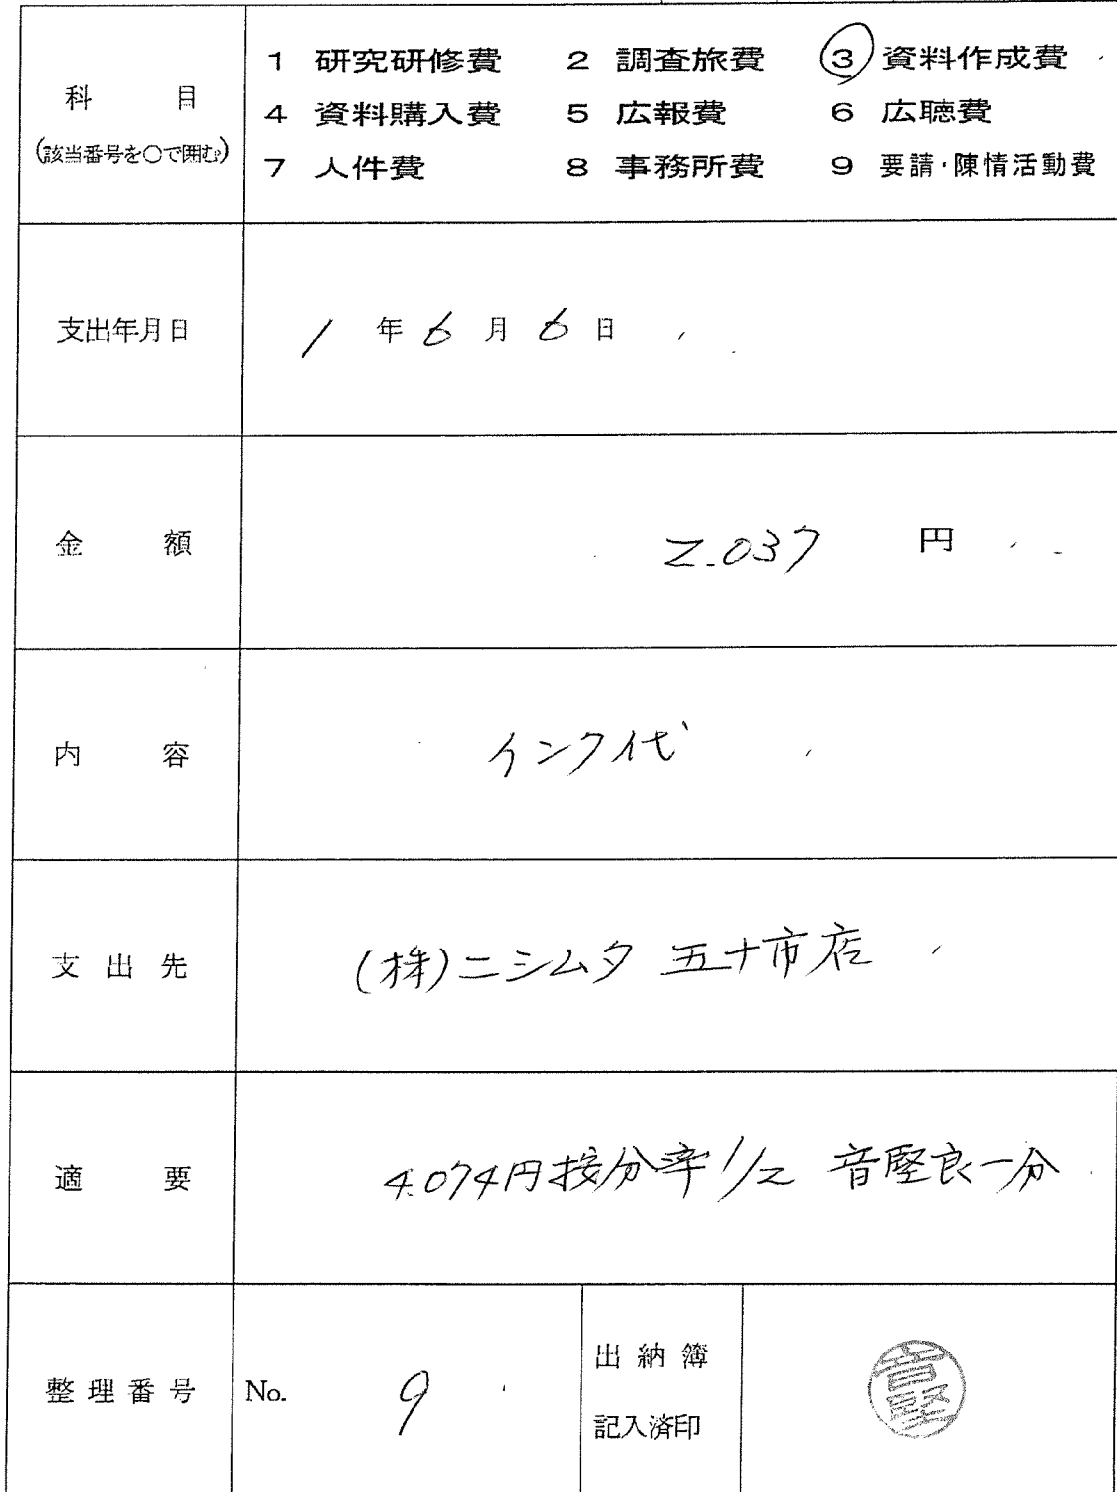 科目
(該当番号を○で囲む)
1 研究研修費 2 調査旅費 ③ 資料作成費
4 資料購入費 5 広報費 6 広聴費
7 人件費 8 事務所費 9 要請・陳情活動費
支出年月日 1年6月6日
金額 2.037 円
内容 インク代
支出先 (株)ニシムタ 五十市店
適要 4.074円按分率1/2 音堅良一分
整理番号 No. 9
出納簿
記入済印
音堅